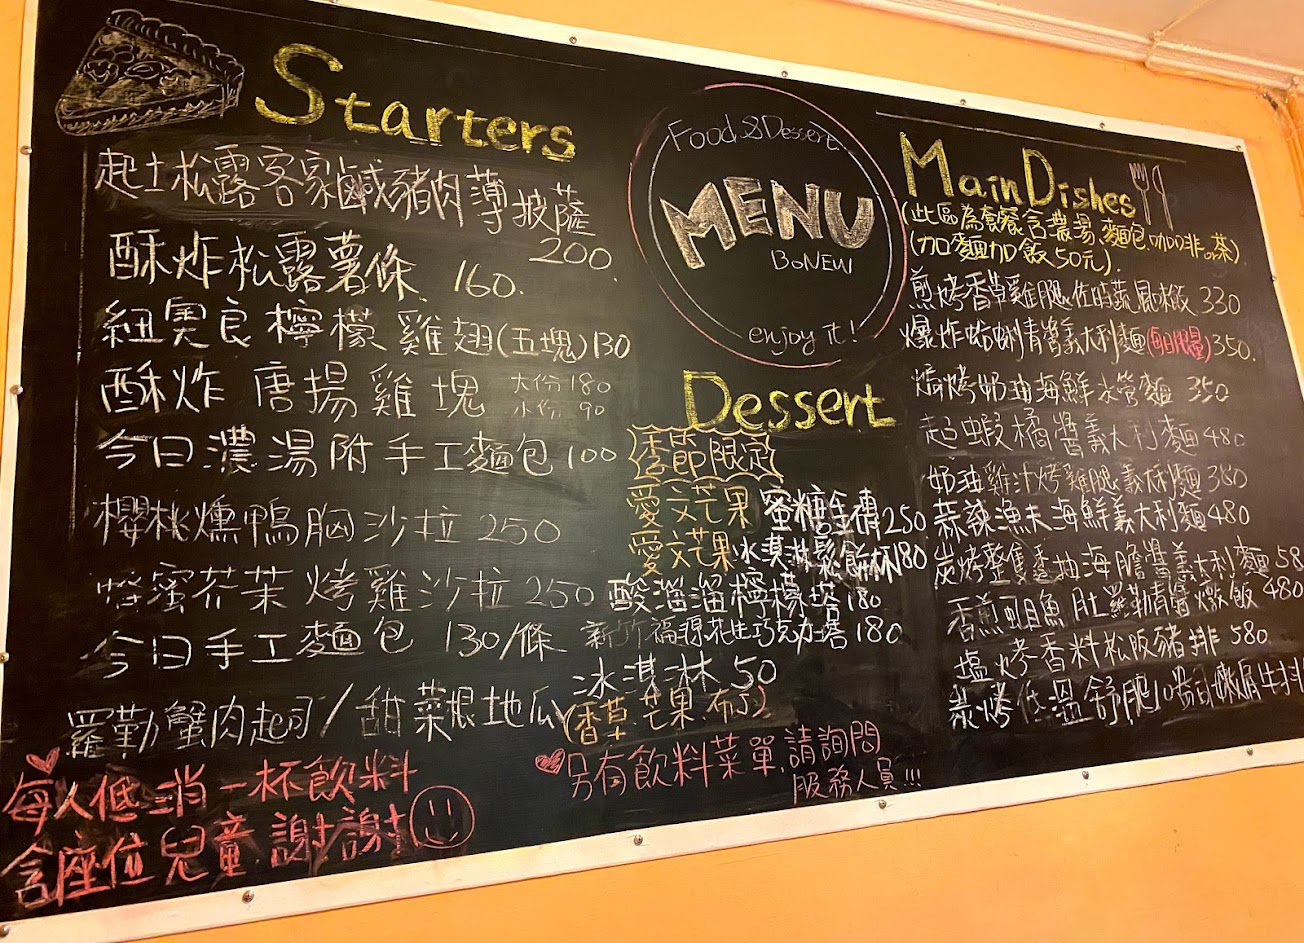 Starters
起士松露客家鹹豬肉薄披薩
200.
酥炸松露薯條 160.
紐奧良檸檬雞翅(五塊)130
酥炸唐揚雞塊 大份180
小份90
今日濃湯附手工麵包100
櫻桃燻鴨胸沙拉250
蜂蜜芥茉烤雞沙拉250
今日手工麵包 130/條
羅勒蟹肉起司/甜菜根地瓜
每人低消一杯飲料
含座位兒童.謝謝
Food & Dessert
MENU
BoNEW
enjoy it!
Dessert
季節限定
愛文芒果蜜糖金磚250
愛文芒果冰淇淋鬆餅杯180
酸溜溜檸檬塔180
新竹福源花生巧克力塔180
冰淇淋50
(香草.芒果.布丁)
另有飲料菜單,請詢問
服務人員!!!
Main Dishes
(此區為套餐含濃湯、麵包,咖啡or茶)
(加麵加飯50元).
煎烤香草雞腿佐時蔬 330
爆炸蛤蜊青醬義大利麵 350.
焗烤奶油海鮮水管麵 350
起 蝦橘醬義大利麵480
奶油雞汁烤雞腿義大利麵360
蒜辣漁夫海鮮義大利麵480
炭烤整隻透抽海膽醬義大利麵 58
香煎虱目魚肚羅勒青醬燉飯 480
塩烤香料松阪豬排 580
炭烤低溫舒肥10 嫩肩牛排